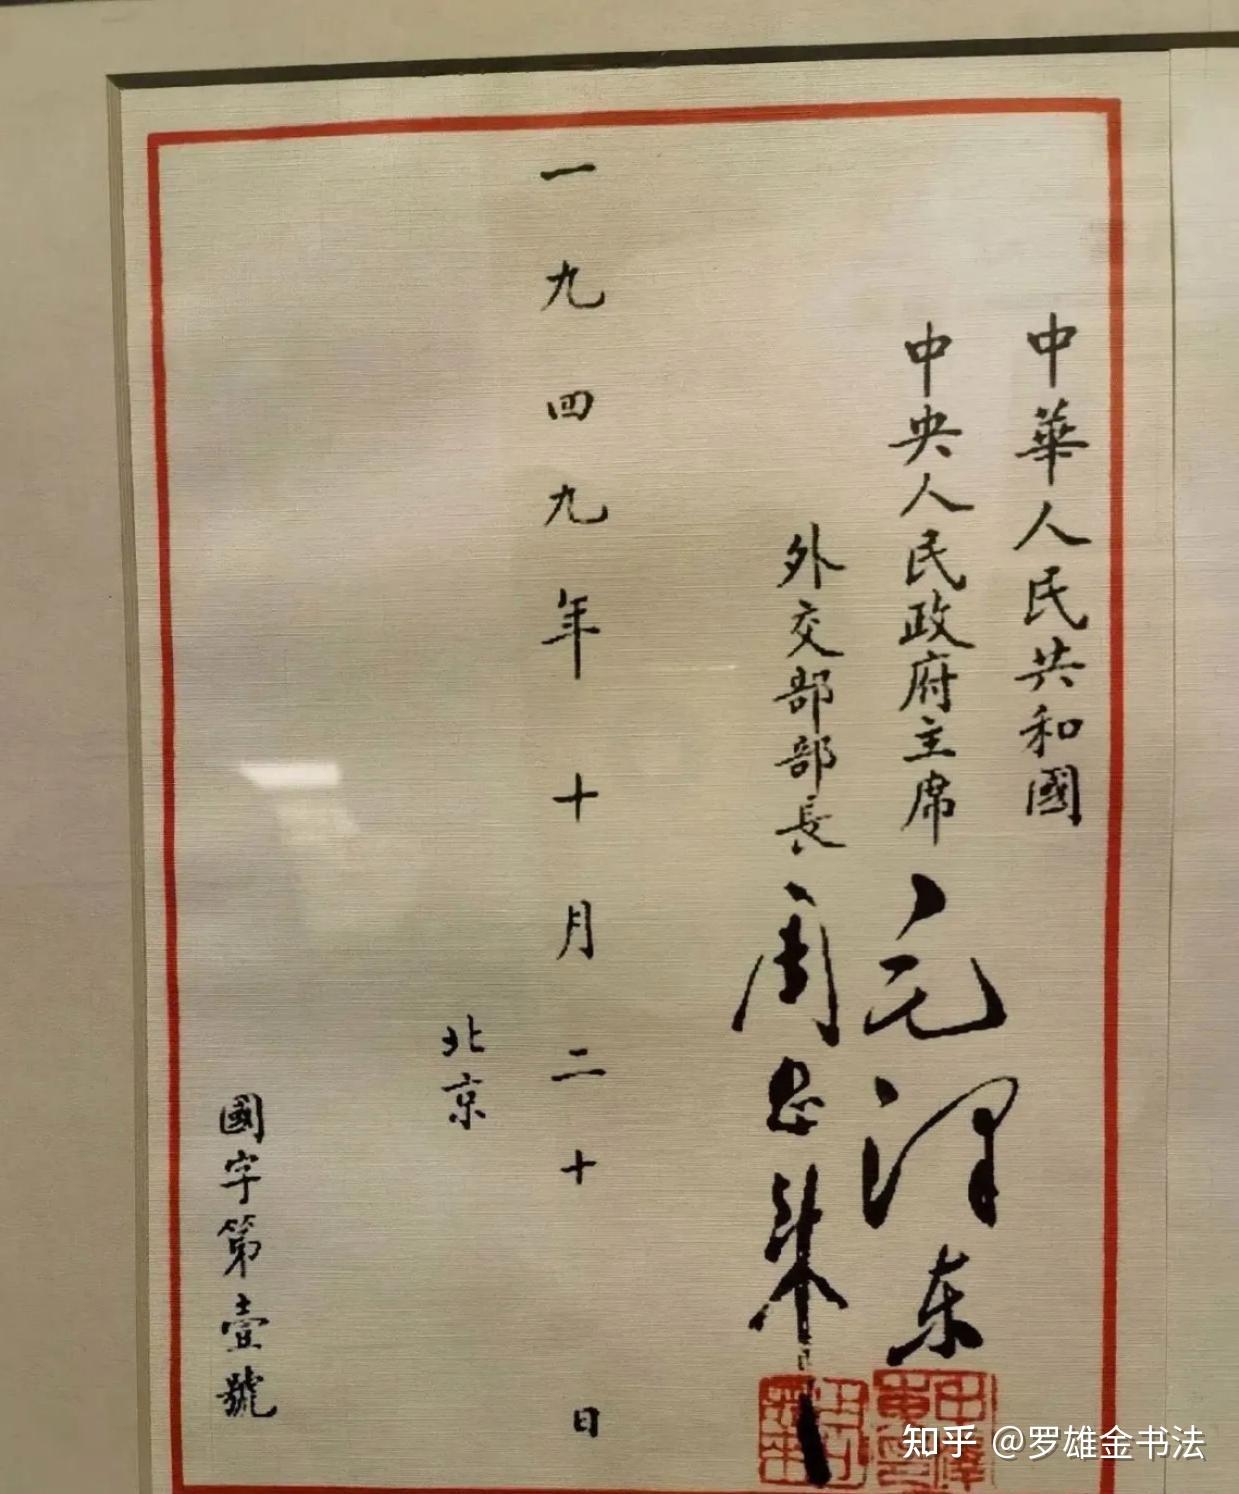 中華人民共和國
中央人民政府主席 毛泽东
外交部部長 周恩来
一九四九年十月二十日
北京
國字第壹號
知乎 @罗雄金书法